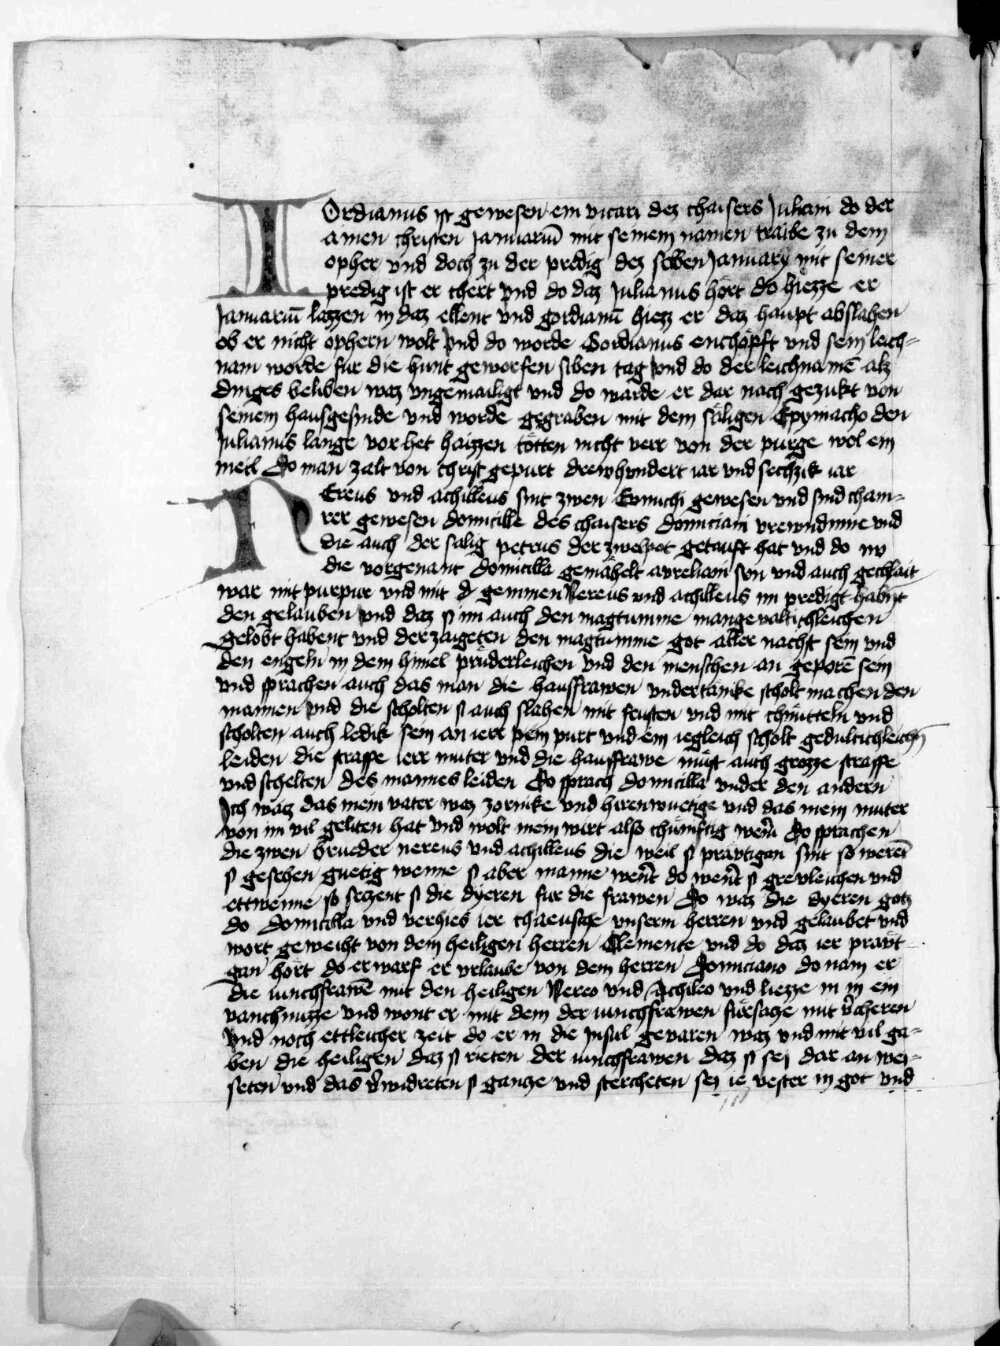 IOrdianus ist gewesen ein vicari dez chaisers Juliani do der
ainen christen Januariū mit seinem namen traibe zu dem
opher vnd doch zu der predig dez selben Januarÿ mit seiner
predig ist er chert vnd do daz Julianus hört do hiezze er
Januariū lazzen in daz ellent vnd gordianū hiezz er daz haupt abslahen
ob er nicht ophern wolt vnd do worde Gordianus enchöpft vnd sein leich=
nam worde fur die hunt geworfen siben tag vnd do der leichnamē alz
dinges beliben waz vngemailigt vnd do warde er dar nach gezukt von
seinem hausgesinde vnd worde gegraben mit dem säligen Epymacho den
Julianus lange vor het haizzen tötten nicht verr von der purge wol ein
meil Do man zalt von christ gepurt drewhvndert iar vnd sechzik iar
NEreus vnd achilleus sint zwen Evnuchi gewesen vnd sind cham=
rer gewesen domicille des chaisers domiciani vrewndinne vnd
die auch der salig petrus der zwelpot getauft hat vnd do nv
die vorgenant domicilla gemähelt avreliani son vnd auch gechlait
war mit purpur vnd mit d gemmen Nereus vnd achilleus im predigt habnt
den gelauben vnd daz si im auch den magtumme mangevaltichleichen
gelobt habent vnd derzaigeten den magtumme got aller nachst sein vnd
den engeln in dem himel prüderleichen vnd den menschen an geporē sein
vnd sprachen auch das man die hausfrawen vndertänike scholt machen den
mannen vnd die scholten si auch slahen mit feusten vnd mit chnütteln vnd
scholten auch ledik sein an ierr pem purt vnd ein iegleich scholt gedultichleichn
leiden die straffe ierr muter vnd die hausfrawe müst auch grozze straffe
vnd schelten des mannes leiden Do sprach domicilla vnder den andern
Ich waiz das mein vater waz zornike vnd hirenwuetige vnd das mein muter
von im vil geliten hat vnd wolt mein wirt also chümftig werñ Do sprachen
die zwen brueder nereus vnd achilleus die weil si prävtigan sint so werēt
si gesehen guetig wenne si aber manne werñt do werñt si grevleichen vnd
ettwenne so sezzent si die dyeren fur die frawen Do waz die dyeren gotz
do domicilla vnd verhies ier chaeusche vnserm herren vnd gelaubet vnd
wort geweiht von dem heiligen herren Clemente vnd do daz ier prävt=
gan hört do erwarf er vrlaube von dem herren Domiciano do nam er
die iunchfrawē mit den heiligen Nereo vnd Achileo vnd liezze in in ein
vanchnüzze vnd wont er mit dem der iunchfrawen füresacze mit v̄cheren
vnd noch ettleicher zeit do er in die insul gevaren waz vnd mit vil ga=
ben die heiligen daz si rieten der iunchfrawen daz si sei dar an wei=
seten vnd das v̄widreten si gancze vnd stercheten sei ie vester in got vnd